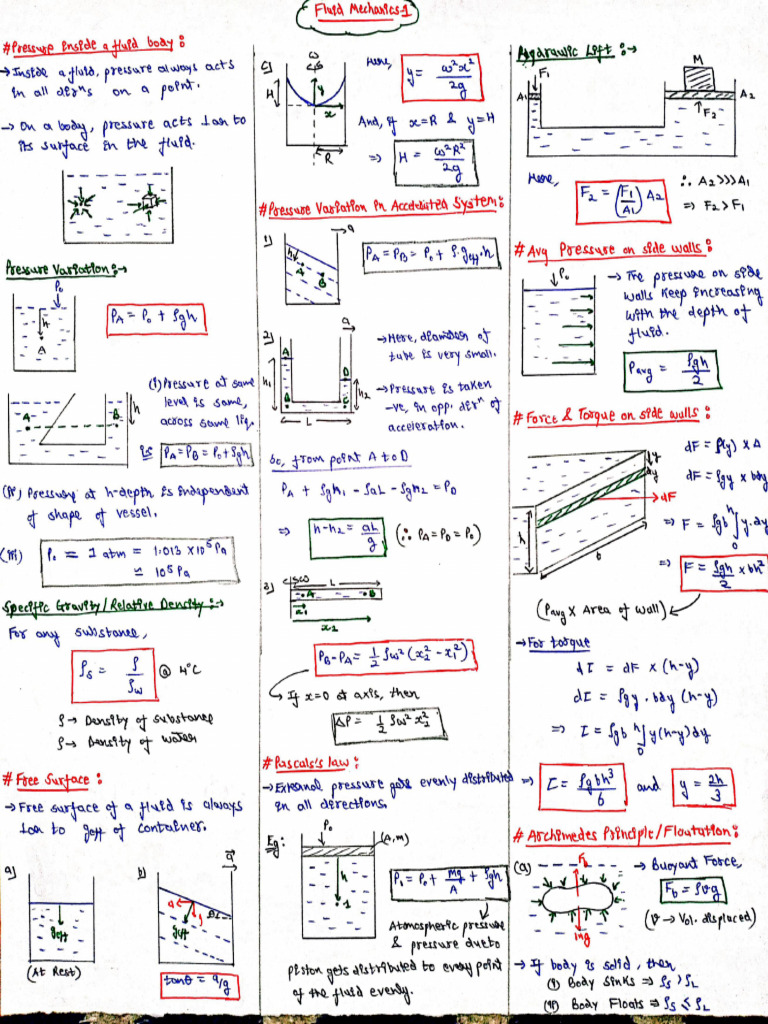 Fluid Mechanics-1
#Pressure inside a fluid body:
→ Inside a fluid, pressure always acts
in all dirⁿs on a point.
→ On a body, pressure acts ⊥ar to
its surface in the fluid.
Pressure Variation:→
P₀
h
A
P_A = P₀ + ρgh
A
B
h
(i) Pressure at same
level is same,
across same liq.
is P_A = P_B = P₀ + ρgh
(ii) Pressure at h-depth is independent
of shape of vessel.
(iii) P₀ = 1 atm = 1.013 × 10⁵ Pa
≃ 10⁵ Pa
Specific Gravity/Relative Density:→
For any substance,
ρ_s = ρ/ρ_w @ 4°C
ρ → Density of substance
ρ → Density of water
# Free Surface:
→ Free surface of a fluid is always
⊥ar to g_eff of container.
a)
g_eff
(At Rest)
b)
a
a
g
g_eff
θ
tanθ = a/g
c)
ω
H
y
x
R
Here, y = ω²x²/2g
And, if x=R & y=H
⇒ H = ω²R²/2g
#Pressure Variation in Accelerated System:
1)
a
h
A
B
P_A = P_B = P₀ + ρ.g_eff.h
2)
a
A
h₁
D
h₂
B
C
L
→ Here, diameter of
tube is very small.
→ Pressure is taken
-ve, in opp. dirⁿ of
acceleration.
So, from point A to D
P_A + ρgh₁ - ρaL - ρgh₂ = P_D
⇒ h-h₂ = aL/g (∵ P_A = P_D = P₀)
3)
ω
L
A
B
x₁
x₂
P_B-P_A = 1/2 ρω² (x₂² - x₁²)
→ If x=0 at axis, then
ΔP = 1/2 ρω² x₂²
#Pascals's law:
→ External pressure gets evenly distributed
in all directions.
Eg:
P₀
(A, m)
h
1
P₁ = P₀ + mg/A + ρgh
Atomospheric pressure
& pressure due to
piston gets distributed to every point
of the fluid evenly.
Hydraulic Lift:→
F₁
M
A₁
A₂
F₂
Here, F₂ = (F₁/A₁) A₂
∴ A₂>>>A₁
⇒ F₂>F₁
# Avg Pressure on side walls:
P₀
→ The pressure on side
walls keep increasing
with the depth of
fluid.
P_avg = ρgh/2
# Force & Torque on side walls:
y
dy
dF
h
b
dF = P(y) × A
dF = ρgy × bdy
⇒ F = ρgb ∫₀ʰ y.dy
⇒ F = ρgh/2 × bh
(P_avg × Area of wall)
→ For torque
dτ = dF × (h-y)
dτ = ρgy . bdy (h-y)
⇒ τ = ρgb ∫₀ʰ y(h-y)dy
⇒ τ = ρgbh³/6 and y = 2h/3
# Archimedes Principle/Floatation:
(a)
F_b
mg
→ Buoyant Force,
F_b = ρvg
(v → Vol. displaced)
→ If body is solid, then
(i) Body Sinks ⇒ ρ_s > ρ_L
(ii) Body Floats ⇒ ρ_s ≤ ρ_L